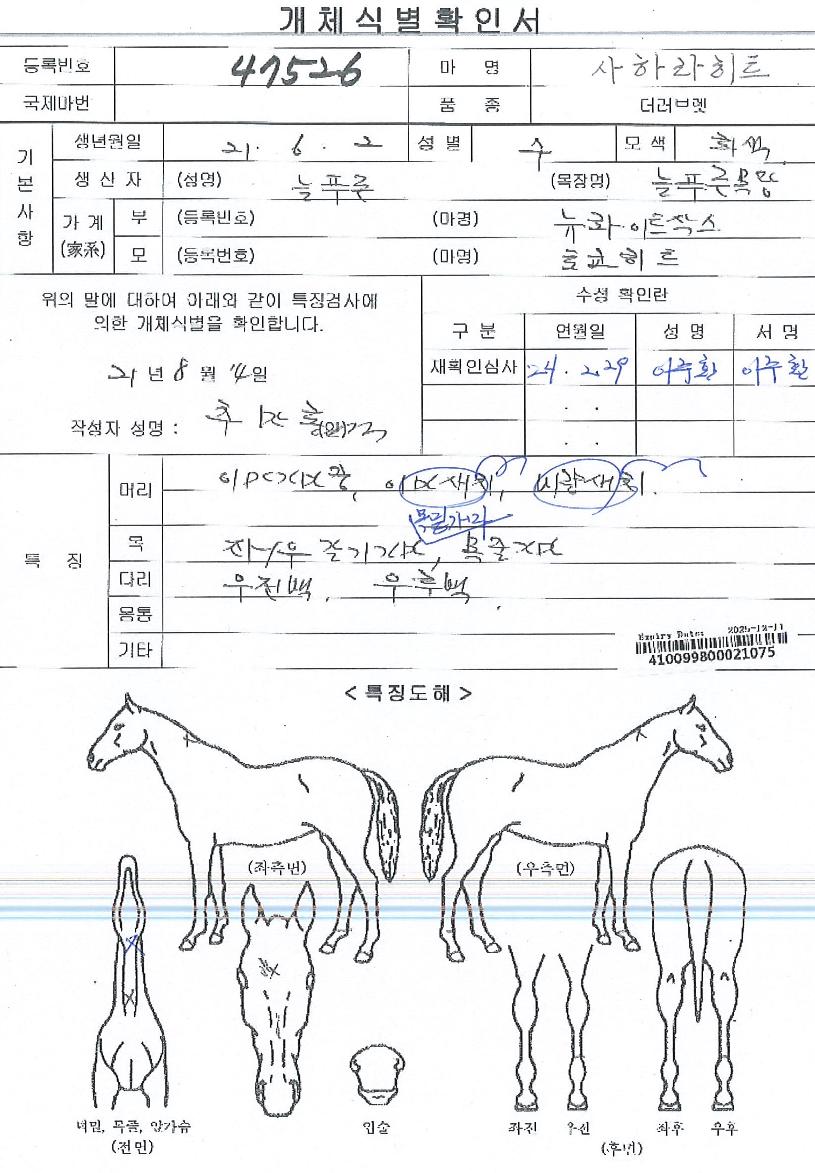 개체식별확인서
등록번호 47526 마 명 사하라히트
국제마번 품 종 더러브렛
기본사항
생년월일 21. 6. 2 성별 수 모색 회색
생산자 (성명) 늘푸른 (목장명) 늘푸른목장
가계 (家系) 부 (등록번호) (마명) 뉴화이트삭스
모 (등록번호) (마명) 호교히트
위의 말에 대하여 아래와 같이 특징검사에
의한 개체식별을 확인합니다.
21년 8월 4일
작성자 성명 :
수생 확인란
구분 연월일 성명 서명
재확인심사 24. 2. 29 이주환 이주환
특 징
머리
목
다리 우전백, 우후백
몸통
기타
Expiry Date: 2025-12-11
410099800021075
< 특징도해 >
(좌측면) (우측면)
턱밑, 목줄, 앞가슴
(전면)
입술
좌전 우전 좌후 우후
(후면)